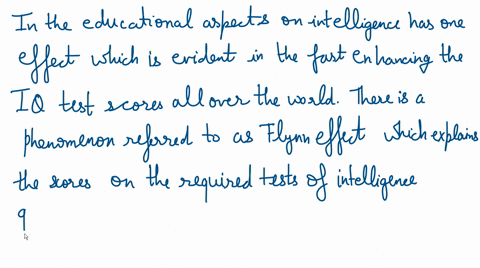 In the educational aspects on intelligence has one
effect which is evident in the fast enhancing the
IQ test scores all over the world. There is a
phenomenon referred to as Flynn effect which explains
the scores on the required tests of intelligence
9